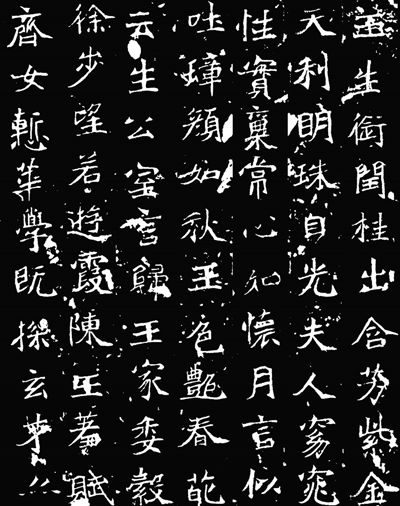 生銜閏桂出含芳紫金
天利明珠自光夫人窈窕
性實稟常心如懷月言似
吐璋顏如秋玉色艷春葩
云生公室言歸王家委縠
徐步望若遊霞陳王著賦
齊女慙華學既探玄